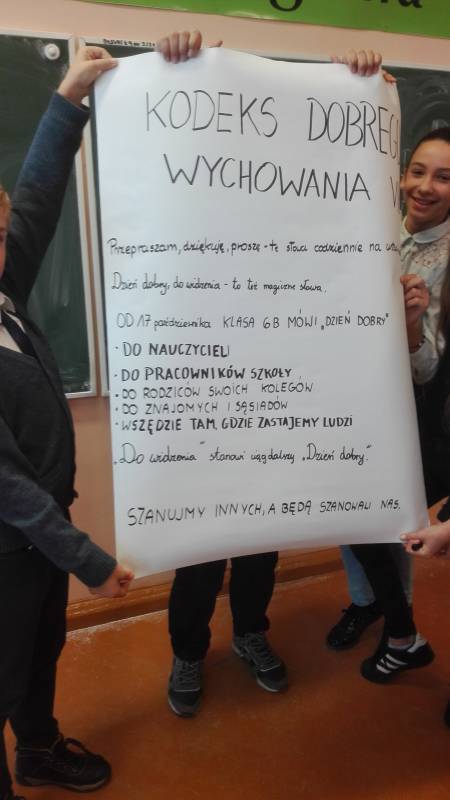 KODEKS DOBREG
WYCHOWANIA V
Przepraszam, dziękuję, proszę - te słowa codziennie na
Dzień dobry, do widzenia - to też magiczne słowa.
OD 17 października KLASA 6B MÓWI „DZIEŃ DOBRY"
· DO NAUCZYCIELI
· DO PRACOWNIKÓW SZKOŁY
· DO RODZICÓW SWOICH KOLEGÓW
· DO ZNAJOMYCH I SĄSIADÓW
· WSZĘDZIE TAM, GDZIE ZASTAJEMY LUDZI
„Do widzenia" stanowi ciąg dalszy „Dzień dobry".
SZANUJMY INNYCH, A BĘDĄ SZANOWALI NAS.